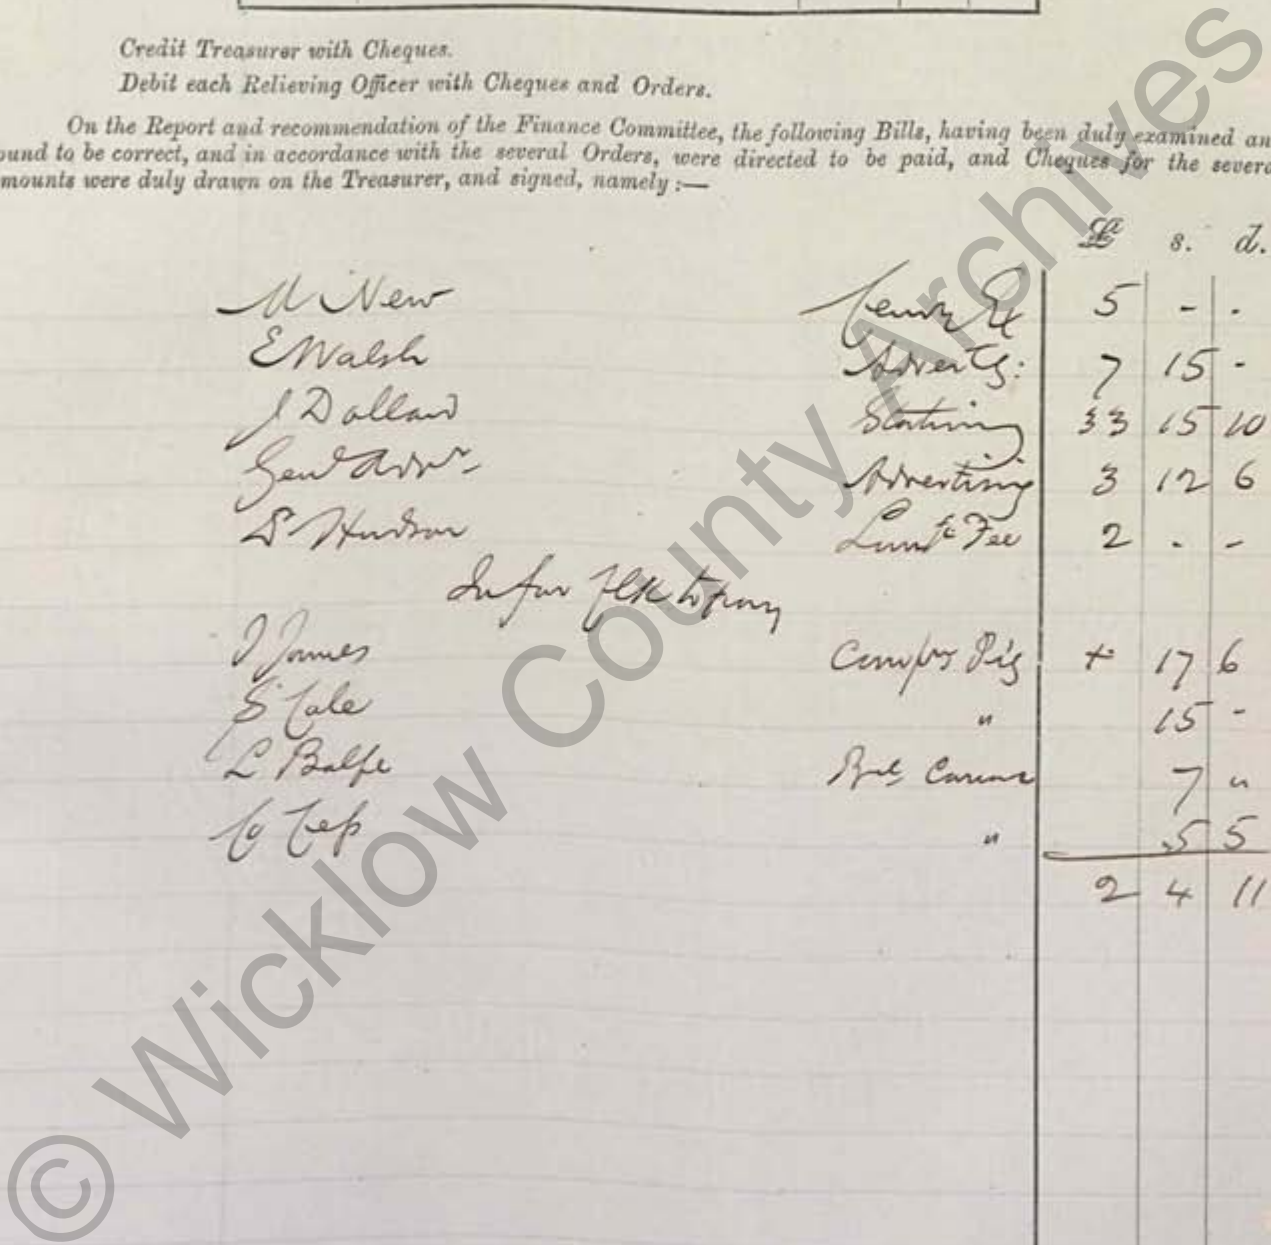 Credit Treasurer with Cheques.
Debit each Relieving Officer with Cheques and Orders.
On the Report and recommendation of the Finance Committee, the following Bills, having been duly examined an
ound to be correct, and in accordance with the several Orders, were directed to be paid, and Cheques for the severa
mounts were duly drawn on the Treasurer, and signed, namely :—
£ s. d.
M New 5 - -
E Walsh Advertg: 7 15 -
J Dollard 33 15 10
Genl Advr Advertising 3 12 6
Hudson Fee 2 - -
J James Pig + 17 6
S Cole " 15 -
L Balfe 7 "
" 5 5
2 4 11
© Wicklow County Archives